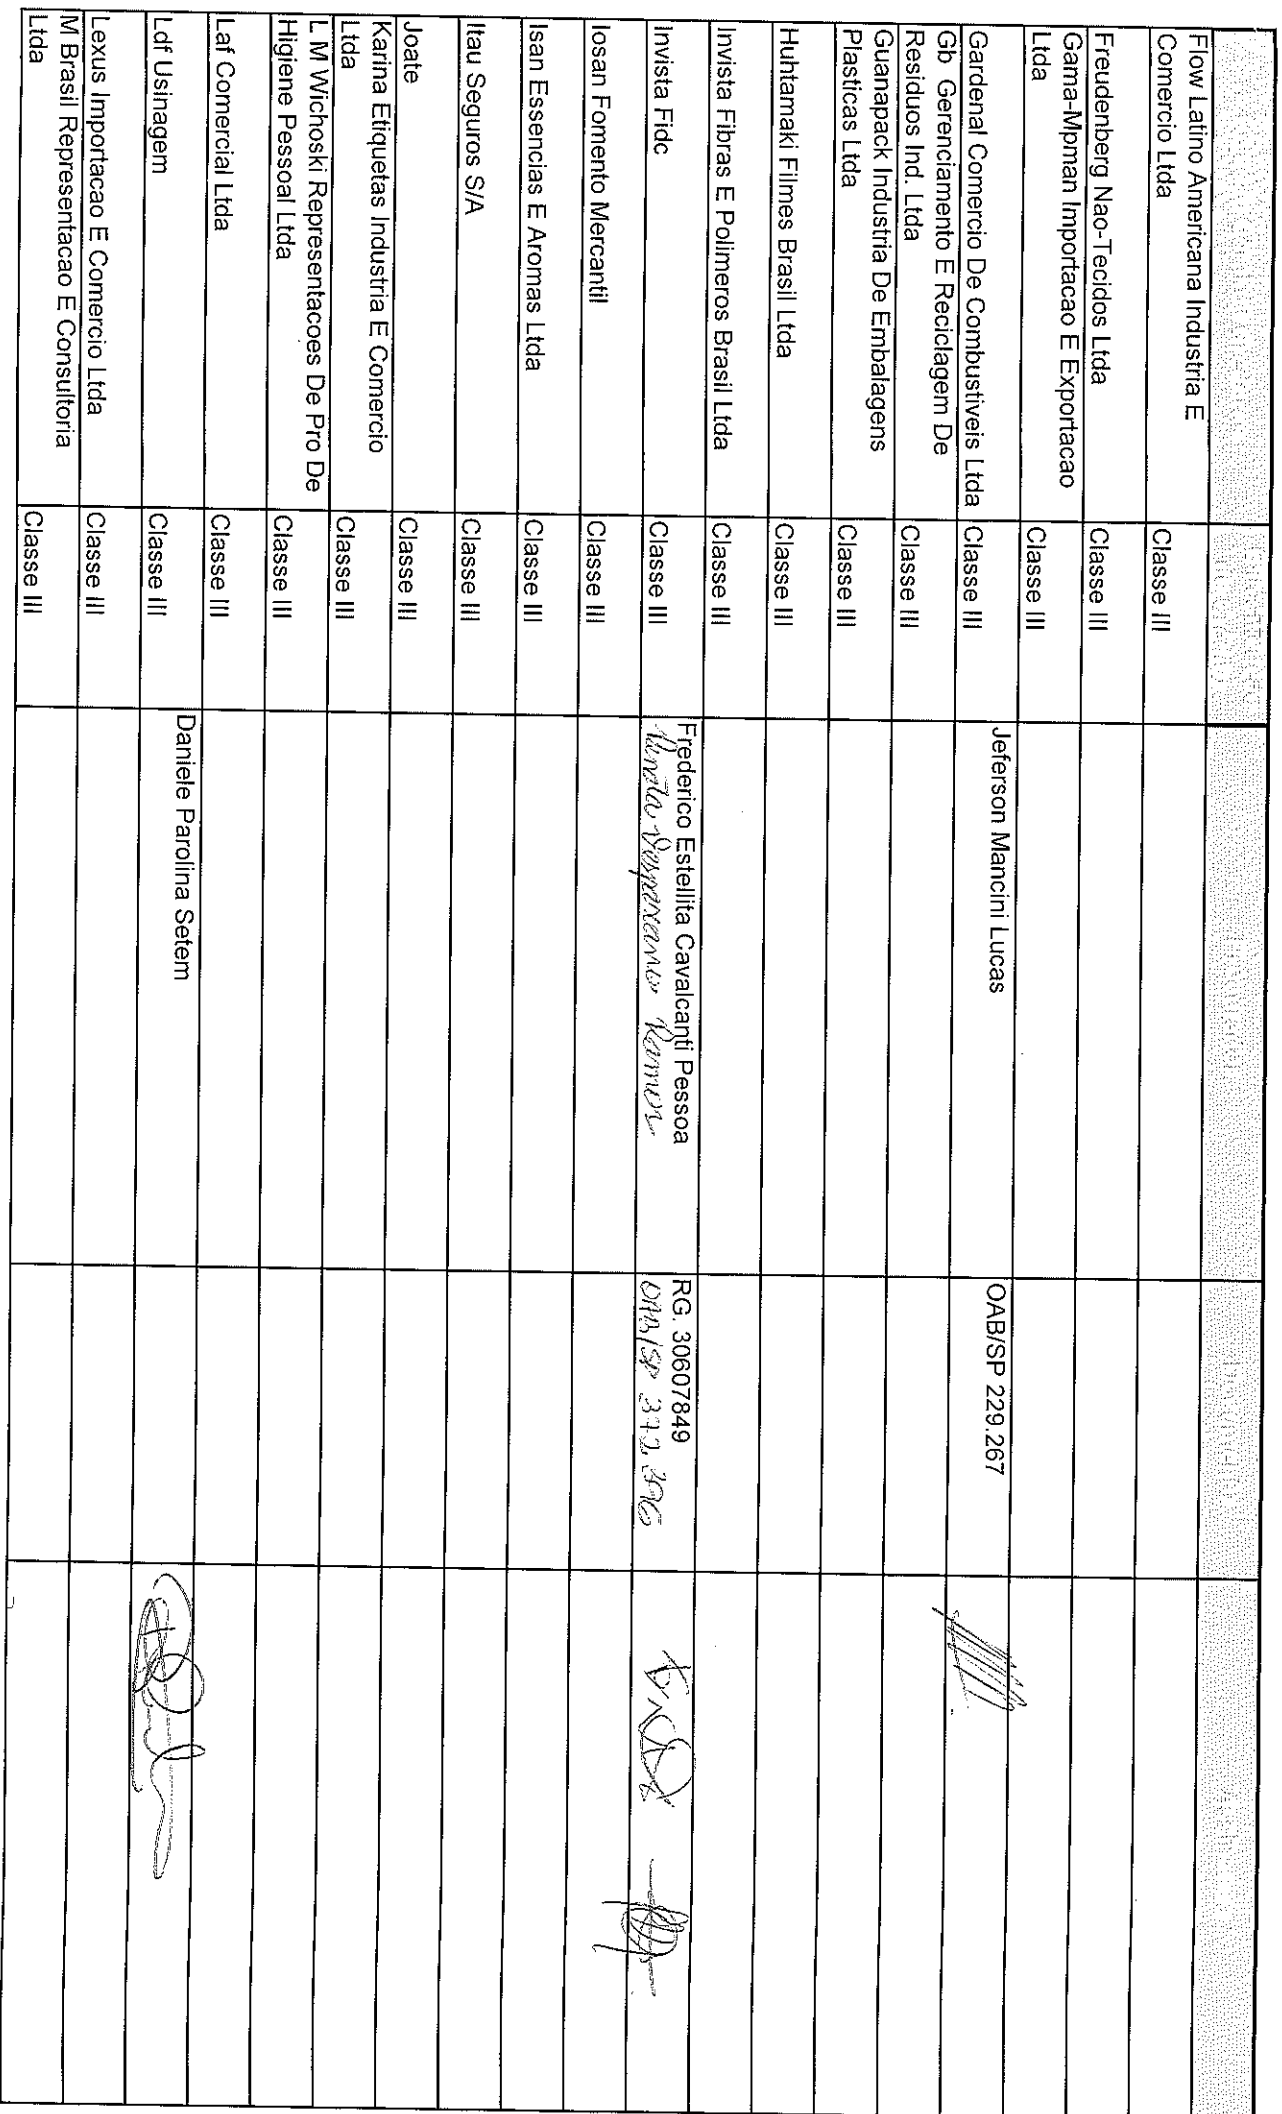 Flow Latino Americana Industria E
Comercio Ltda
Classe III
Freudenberg Nao-Tecidos Ltda
Classe III
Gama-Mpman Importacao E Exportacao
Ltda
Classe III
Gardenal Comercio De Combustiveis Ltda
Classe III
Jeferson Mancini Lucas
OAB/SP 229.267
Gb Gerenciamento E Reciclagem De
Residuos Ind. Ltda
Classe III
Guanapack Industria De Embalagens
Plasticas Ltda
Classe III
Huhtamaki Filmes Brasil Ltda
Classe III
Invista Fibras E Polimeros Brasil Ltda
Classe III
Invista Fidc
Classe III
Frederico Estellita Cavalcanti Pessoa
Ramos
RG. 30607849
OAB/SP
Iosan Fomento Mercantil
Classe III
Isan Essencias E Aromas Ltda
Classe III
Itau Seguros S/A
Classe III
Joate
Classe III
Karina Etiquetas Industria E Comercio
Ltda
Classe III
L M Wichoski Representacoes De Pro De
Higiene Pessoal Ltda
Classe III
Laf Comercial Ltda
Classe III
Ldf Usinagem
Classe III
Daniele Parolina Setem
Lexus Importacao E Comercio Ltda
Classe III
M Brasil Representacao E Consultoria
Ltda
Classe III